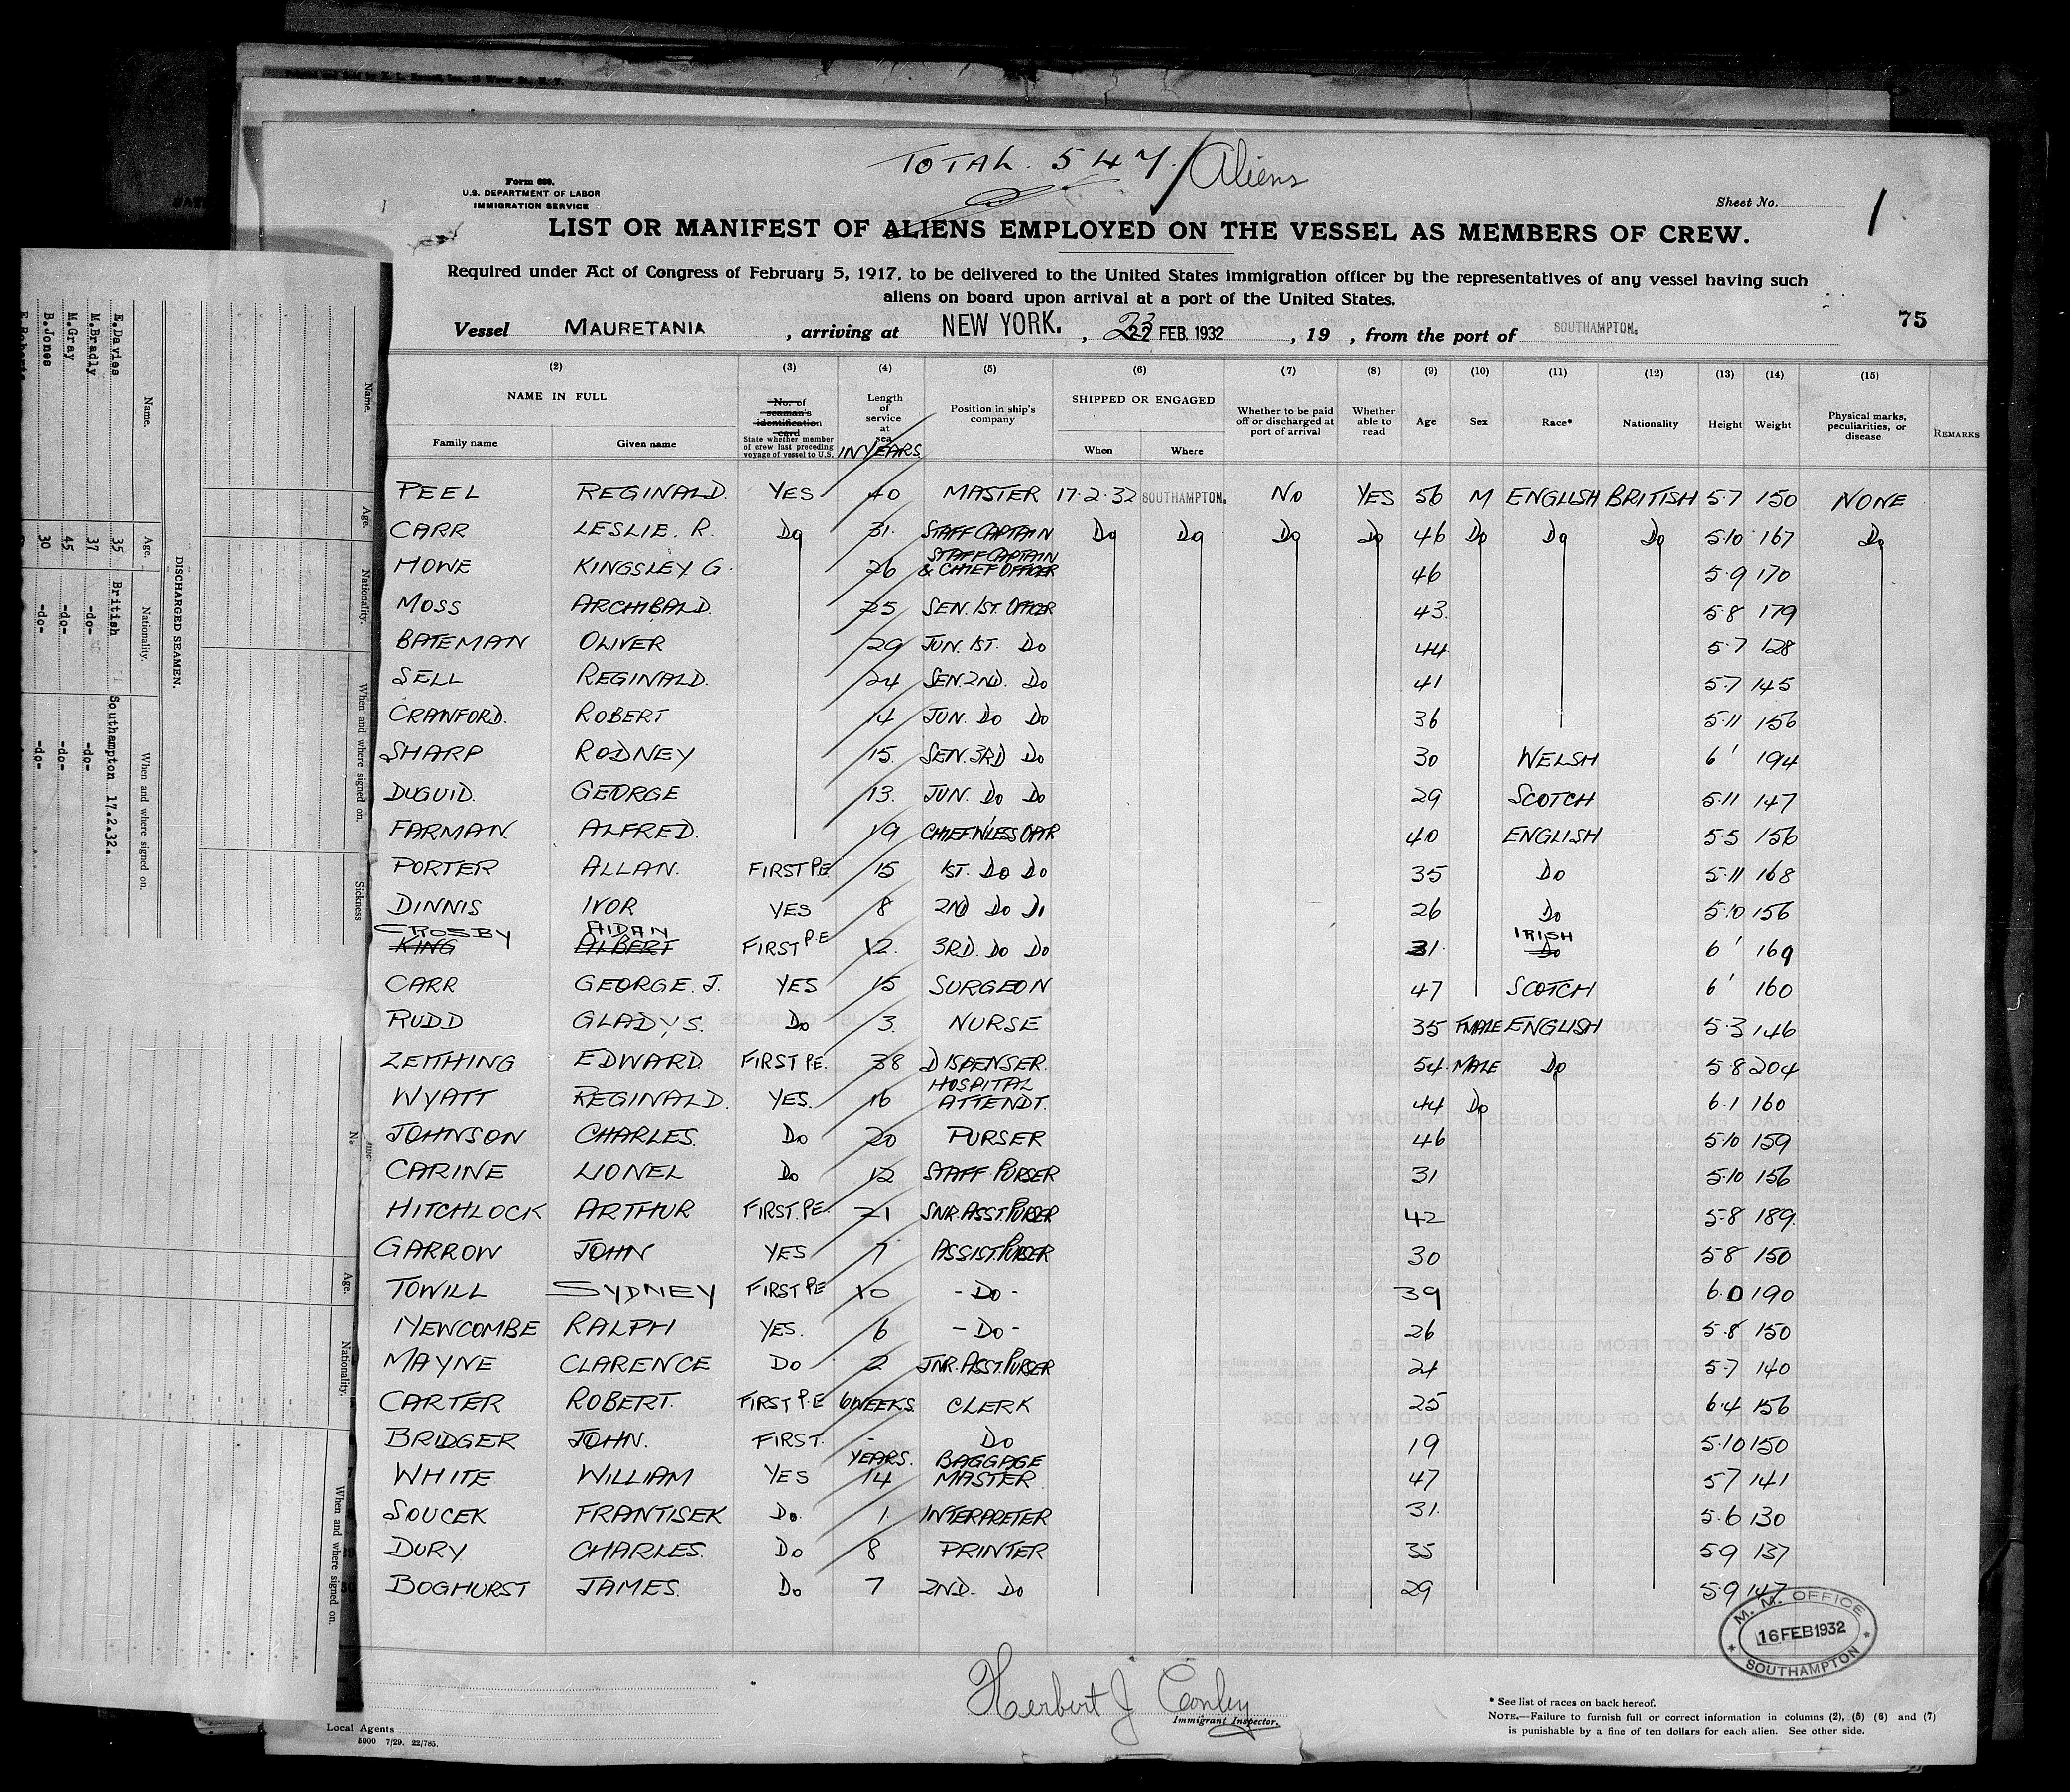 Printed and Sold by
TOTAL. 547 / Aliens
Form 689.
U.S. DEPARTMENT OF LABOR
IMMIGRATION SERVICE
Sheet No. 1
LIST OR MANIFEST OF ALIENS EMPLOYED ON THE VESSEL AS MEMBERS OF CREW.
Required under Act of Congress of February 5, 1917, to be delivered to the United States immigration officer by the representatives of any vessel having such
aliens on board upon arrival at a port of the United States.
75
Vessel MAURETANIA , arriving at NEW YORK. , 23 22 FEB. 1932 , 19 , from the port of SOUTHAMPTON.
(2) (3) (4) (5) (6) (7) (8) (9) (10) (11) (12) (13) (14) (15)
NAME IN FULL
Family name Given name
No. of seaman's identification card
State whether member of crew last preceding voyage of vessel to U.S.
Length of service at sea
IN YEARS.
Position in ship's company
SHIPPED OR ENGAGED
When Where
Whether to be paid off or discharged at port of arrival
Whether able to read
Age Sex Race* Nationality Height Weight
Physical marks, peculiarities, or disease
REMARKS
PEEL REGINALD. YES 40 MASTER 17.2.32 SOUTHAMPTON. NO YES 56 M ENGLISH BRITISH 5.7 150 NONE
CARR LESLIE. R. Do 31. STAFF CAPTAIN Do Do Do Do 46 Do Do Do 5.10 167 Do
HOWE KINGSLEY. G. 26 STAFF CAPTAIN & CHIEF OFFICER 46 5.9 170
MOSS ARCHIBALD. 25 SEN. 1ST. OFFICER 43. 5.8 179
BATEMAN OLIVER 29 JUN. 1ST. Do 44. 5.7 128
SELL REGINALD. 24 SEN. 2ND. Do 41 5.7 145
CRAWFORD. ROBERT 14 JUN. Do Do 36 5.11 156
SHARP RODNEY 15. SEN. 3RD Do 30 WELSH 6' 194
DUGUID. GEORGE 13. JUN. Do Do 29 SCOTCH 5.11 147
FARMAN. ALFRED. 19 CHIEF W'LESS OPTR 40 ENGLISH 5.5 156
PORTER ALLAN. FIRST P.E. 15 1ST. Do Do 35 Do 5.11 168
DINNIS IVOR YES 8 2ND Do Do 26 Do 5.10 156
CROSBY AIDAN IRISH
KING ALBERT FIRST P.E 12. 3RD. Do Do 31. Do 6' 169
CARR GEORGE. J. YES 15 SURGEON 47 SCOTCH 6' 160
RUDD GLADYS. Do 3. NURSE 35 FMALE ENGLISH 5.3 146
ZEITHING EDWARD. FIRST P.E. 38 DISPENSER. 54. MALE Do 5.8 204
WYATT REGINALD. YES. 16 HOSPITAL ATTENDT. 44 Do 6.1 160
JOHNSON CHARLES. Do 20 PURSER 46 5.10 159
CARINE LIONEL Do 12 STAFF PURSER 31 5.10 156
HITCHLOCK ARTHUR FIRST. P.E. 21 SNR. ASST PURSER 42 5.8 189.
GARROW JOHN YES 7 ASSIST. PURSER 30 5.8 150
TOWILL SYDNEY FIRST P.E 10 - Do - 39 6.0 190
NEWCOMBE RALPH YES. 6 - Do - 26 5.8 150
MAYNE CLARENCE Do 2 JNR. ASST. PURSER 21 5.7 140
CARTER ROBERT. FIRST P.E 6 WEEKS. CLERK 25 6.4 156
BRIDGER JOHN. FIRST. - Do 19 5.10 150
WHITE WILLIAM YES YEARS. 14 BAGGAGE MASTER 47 5.7 141
SOUCEK FRANTISEK Do. 1. INTERPRETER 31. 5.6 130
DURY CHARLES. Do 8 PRINTER 35 5.9 137
BOGHURST JAMES. Do 7 2ND. Do 29 5.9 147
M. M. OFFICE
16 FEB 1932
SOUTHAMPTON
Herbert J Conley
Immigrant Inspector.
Local Agents
5000 7/29. 22/785.
* See list of races on back hereof.
NOTE.—Failure to furnish full or correct information in columns (2), (5) (6) and (7)
is punishable by a fine of ten dollars for each alien. See other side.
DISCHARGED SEAMEN.
Name. Age. Nationality. When and where signed on.
E.Davies 35 British Southampton 17.2.32.
M.Bradly 37 -do- -do-
M.Gray 45 -do- -do-
B.Jones 30 -do- -do-
Name. Age. Nationality. When and where signed on. Sickness
Age. Nationality. When and where signed on.